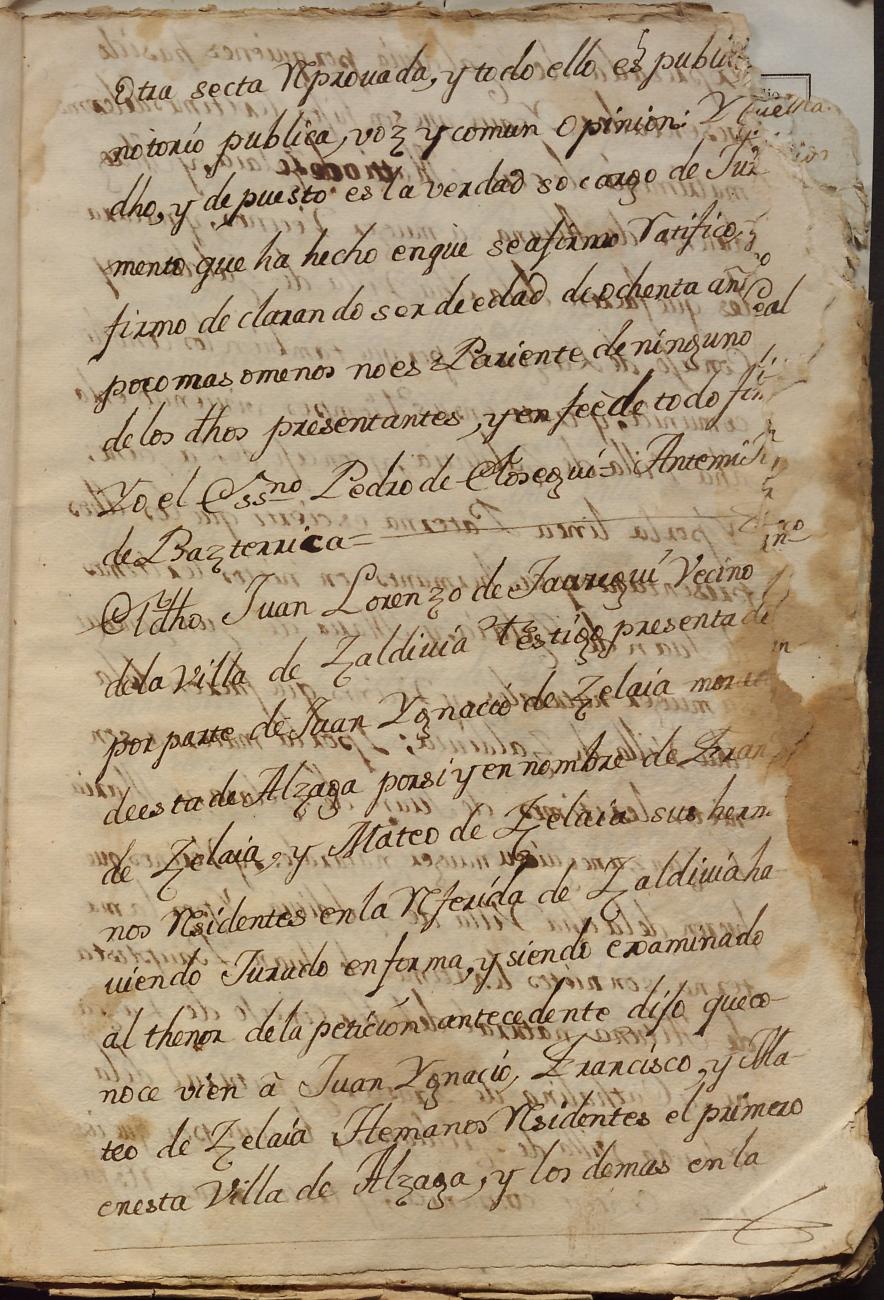 Otra secta Rprouada, y todo ello es public
notorio publica, voz y comun opinion: Y
dho, y depuesto es la verdad so cargo de Jur
mento que ha hecho enque seafirmo Ratifico, y
firmo declarando ser de edad de ochenta añ
pocomas omenos no es Pariente de ninguno
de los dhos presentantes, y en feè de todo fir
Yo el Essno Pedro de Elosegui = Antemi
de Bazterrica =
El dho Juan Lorenzo de Jauregui Vecino
dela Villa de Zaldiuia Testigo presentado
por parte de Juan Ygnacio de Zelaia
deesta de Alzaga porsi y en nombre de Fran
de Zelaia, y Mateo de Zelaia sus herm
nos Rsidentes en la Rferida de Zaldiuia ha
uiendo Jurado en forma, y siendo examinado
al thenor de la peticion antecedente dijo que co-
noce vien à Juan Ygnacio, Francisco, y Ma-
teo de Zelaia Hemanos Rsidentes el primero
enesta Villa de Alzaga, y los demas en la